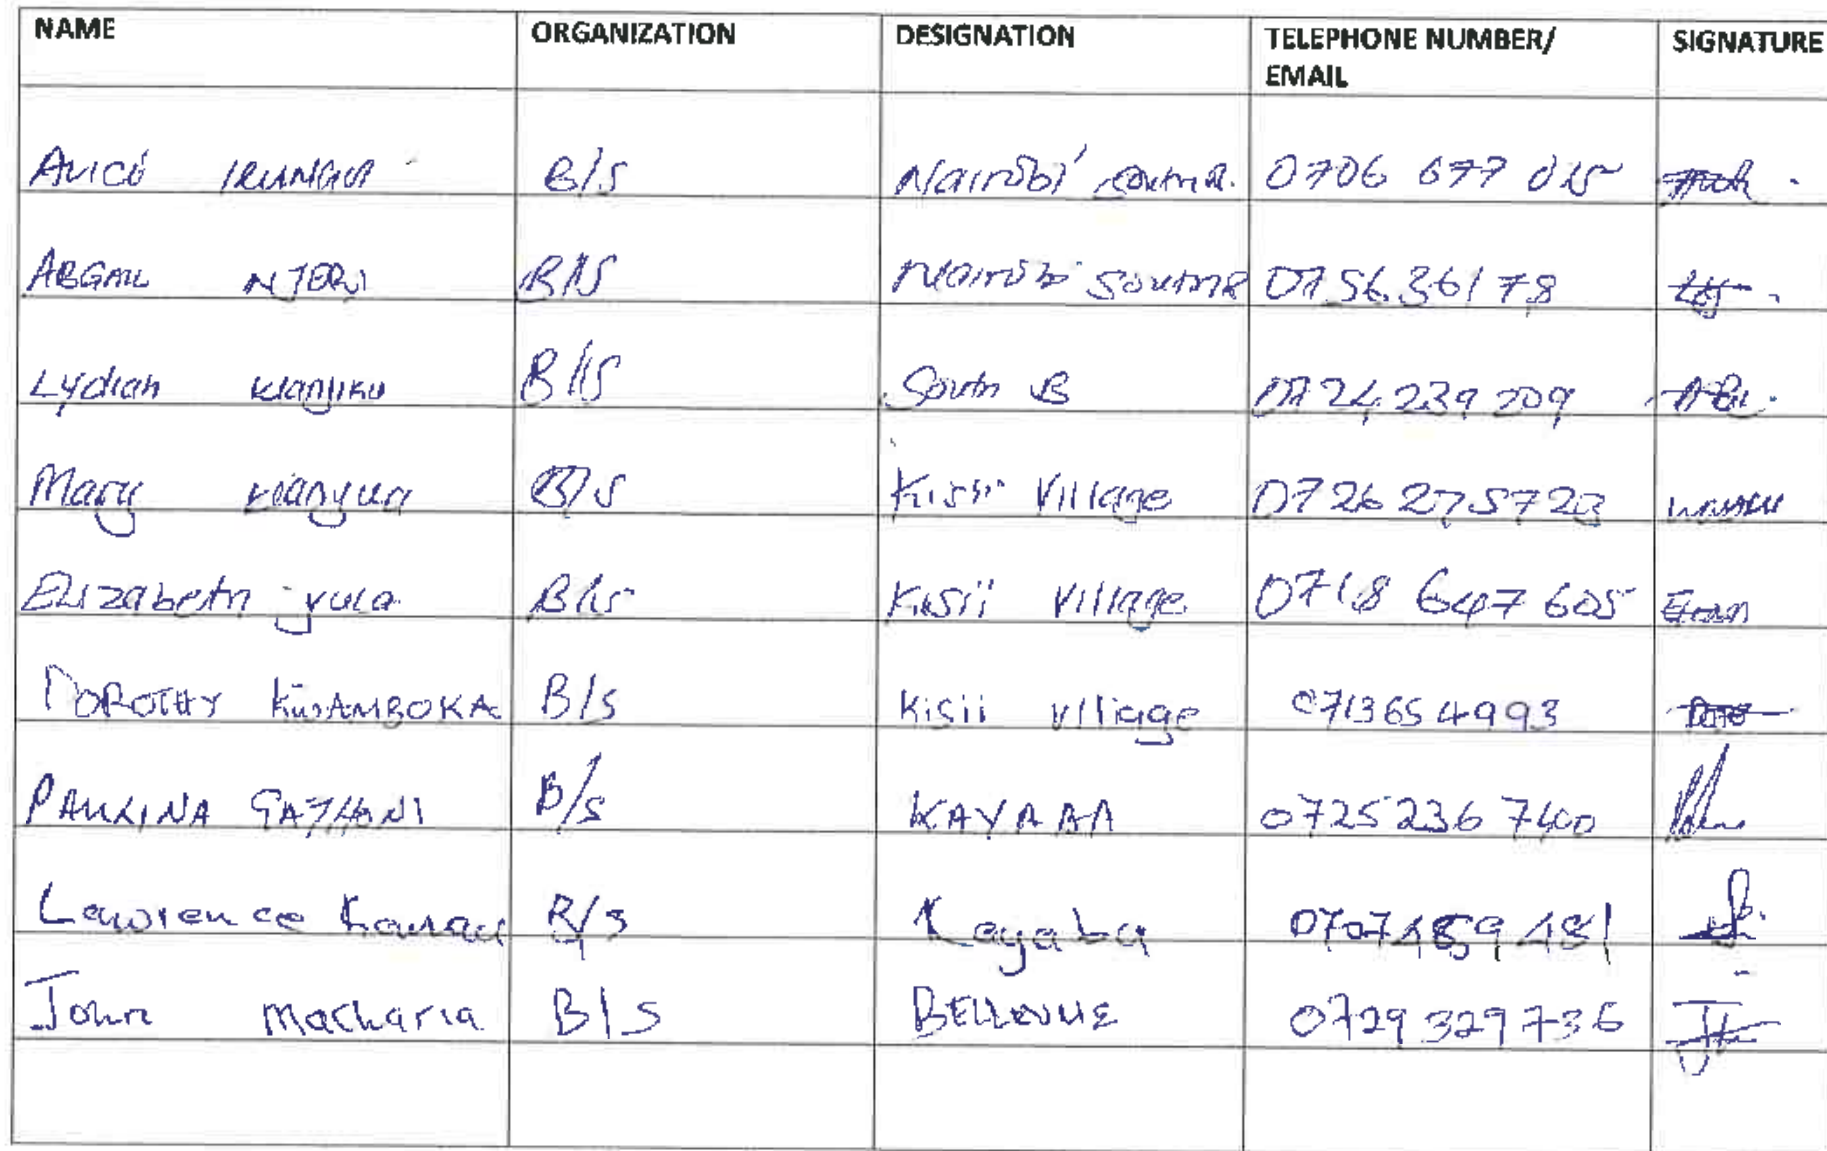 NAME ORGANIZATION DESIGNATION TELEPHONE NUMBER/ SIGNATURE
EMAIL
IRUNGU B/S Nairobi 0706 677 015
ABGAIL NJERI B/S Nairobi 075636178
Lydiah Wanjiku B/S South B 0724239209
Mary B/S Kisii Village 0726275723
Elizabeth B/S Kisii Village 0718 647 605
DOROTHY KWAMBOKA B/S Kisii village 0713654993
PAULINA GATHONI B/S KAYABA 0725236740
Lawrence Kamau B/s Kayaba 0707489481
John Macharia B/S BELLEVUE 0729329736